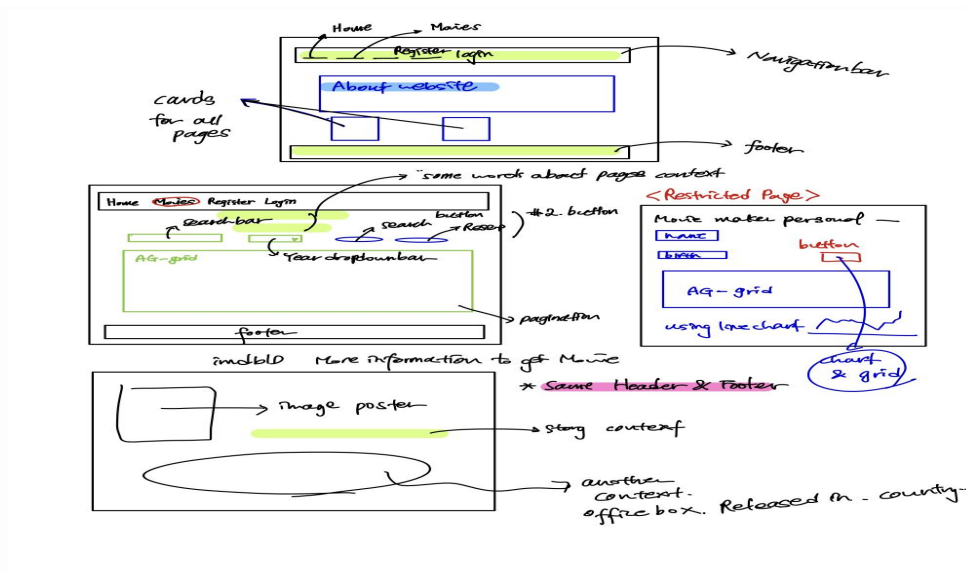 Home Movies
Register login
Navigation bar
About website
cards
for all
pages
footer
"some words about pages context
Home Movies Register Login
search bar
search
button
Reset
#2. button
AG-grid
Year dropdown bar
pagination
footer
<Restricted Page>
Movie maker personal —
name
birth
button
AG-grid
using line chart
chart
& grid
imdbID More information to get Movie
* Same Header & Footer
image poster
story context
another
context.
office box. Released in - country-